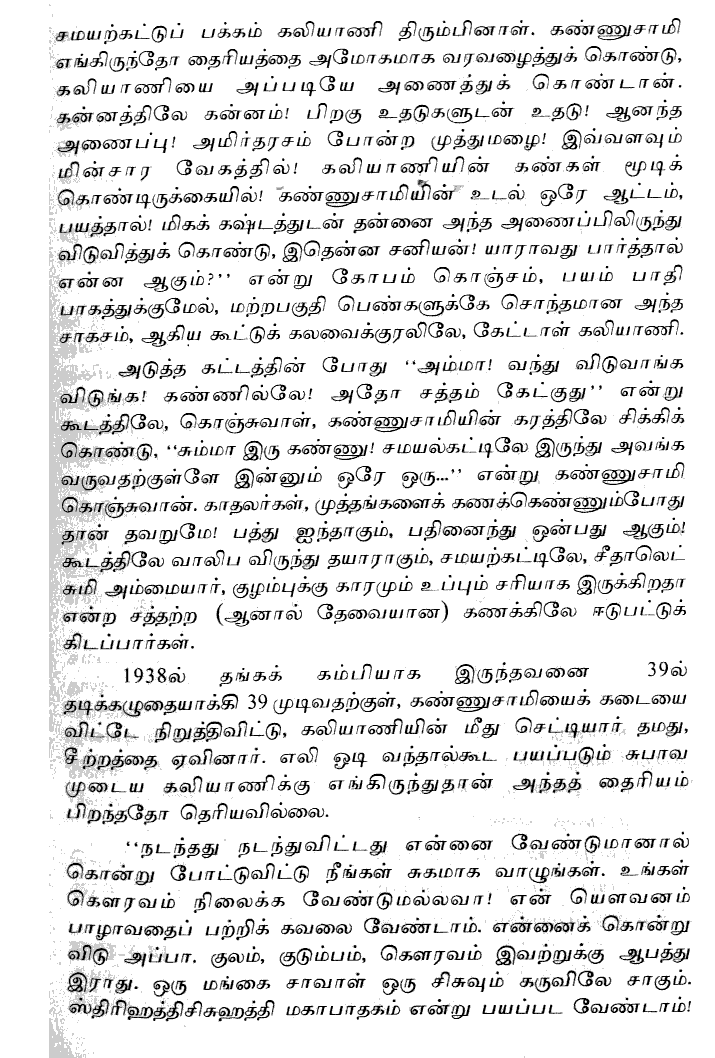 சமயற்கட்டுப் பக்கம் கலியாணி திரும்பினாள். கண்ணுசாமி
எங்கிருந்தோ தைரியத்தை அமோகமாக வரவழைத்துக் கொண்டு,
கலியாணியை அப்படியே அணைத்துக் கொண்டான்.
கன்னத்திலே கன்னம்! பிறகு உதடுகளுடன் உதடு! ஆனந்த
அணைப்பு! அமிர்தரசம் போன்ற முத்துமழை! இவ்வளவும்
மின்சார வேகத்தில்! கலியாணியின் கண்கள் மூடிக்
கொண்டிருக்கையில்! கண்ணுசாமியின் உடல் ஒரே ஆட்டம்,
பயத்தால்! மிகக் கஷ்டத்துடன் தன்னை அந்த அணைப்பிலிருந்து
விடுவித்துக் கொண்டு, இதென்ன சனியன்! யாராவது பார்த்தால்
என்ன ஆகும்?'' என்று கோபம் கொஞ்சம், பயம் பாதி
பாகத்துக்குமேல், மற்றபகுதி பெண்களுக்கே சொந்தமான அந்த
சாகசம், ஆகிய கூட்டுக் கலவைக்குரலிலே, கேட்டாள் கலியாணி.
அடுத்த கட்டத்தின் போது ''அம்மா! வந்து விடுவாங்க
விடுங்க! கண்ணில்லே! அதோ சத்தம் கேட்குது'' என்று
கூடத்திலே, கொஞ்சுவாள், கண்ணுசாமியின் கரத்திலே சிக்கிக்
கொண்டு, ''சும்மா இரு கண்ணு! சமயல்கட்டிலே இருந்து அவங்க
வருவதற்குள்ளே இன்னும் ஒரே ஒரு...'' என்று கண்ணுசாமி
கொஞ்சுவான். காதலர்கள், முத்தங்களைக் கணக்கெண்ணும்போது
தான் தவறுமே! பத்து ஐந்தாகும், பதினைந்து ஒன்பது ஆகும்!
கூடத்திலே வாலிப விருந்து தயாராகும், சமயற்கட்டிலே, சீதாலெட்
சுமி அம்மையார், குழம்புக்கு காரமும் உப்பும் சரியாக இருக்கிறதா
என்ற சத்தற்ற (ஆனால் தேவையான) கணக்கிலே ஈடுபட்டுக்
கிடப்பார்கள்.
1938ல் தங்கக் கம்பியாக இருந்தவனை 39ல்
தடிக்கழுதையாக்கி 39 முடிவதற்குள், கண்ணுசாமியைக் கடையை
விட்டே நிறுத்திவிட்டு, கலியாணியின் மீது செட்டியார் தமது,
சீற்றத்தை ஏவினார். எலி ஒடி வந்தால்கூட பயப்படும் சுபாவ
முடைய கலியாணிக்கு எங்கிருந்துதான் அந்தத் தைரியம்
பிறந்ததோ தெரியவில்லை.
''நடந்தது நடந்துவிட்டது என்னை வேண்டுமானால்
கொன்று போட்டுவிட்டு நீங்கள் சுகமாக வாழுங்கள். உங்கள்
கௌரவம் நிலைக்க வேண்டுமல்லவா! என் யௌவனம்
பாழாவதைப் பற்றிக் கவலை வேண்டாம். என்னைக் கொன்று
விடு அப்பா. குலம், குடும்பம், கௌரவம் இவற்றுக்கு ஆபத்து
இராது. ஒரு மங்கை சாவாள் ஒரு சிசுவும் கருவிலே சாகும்.
ஸ்திரிஹத்திசிசுஹத்தி மகாபாதகம் என்று பயப்பட வேண்டாம்!